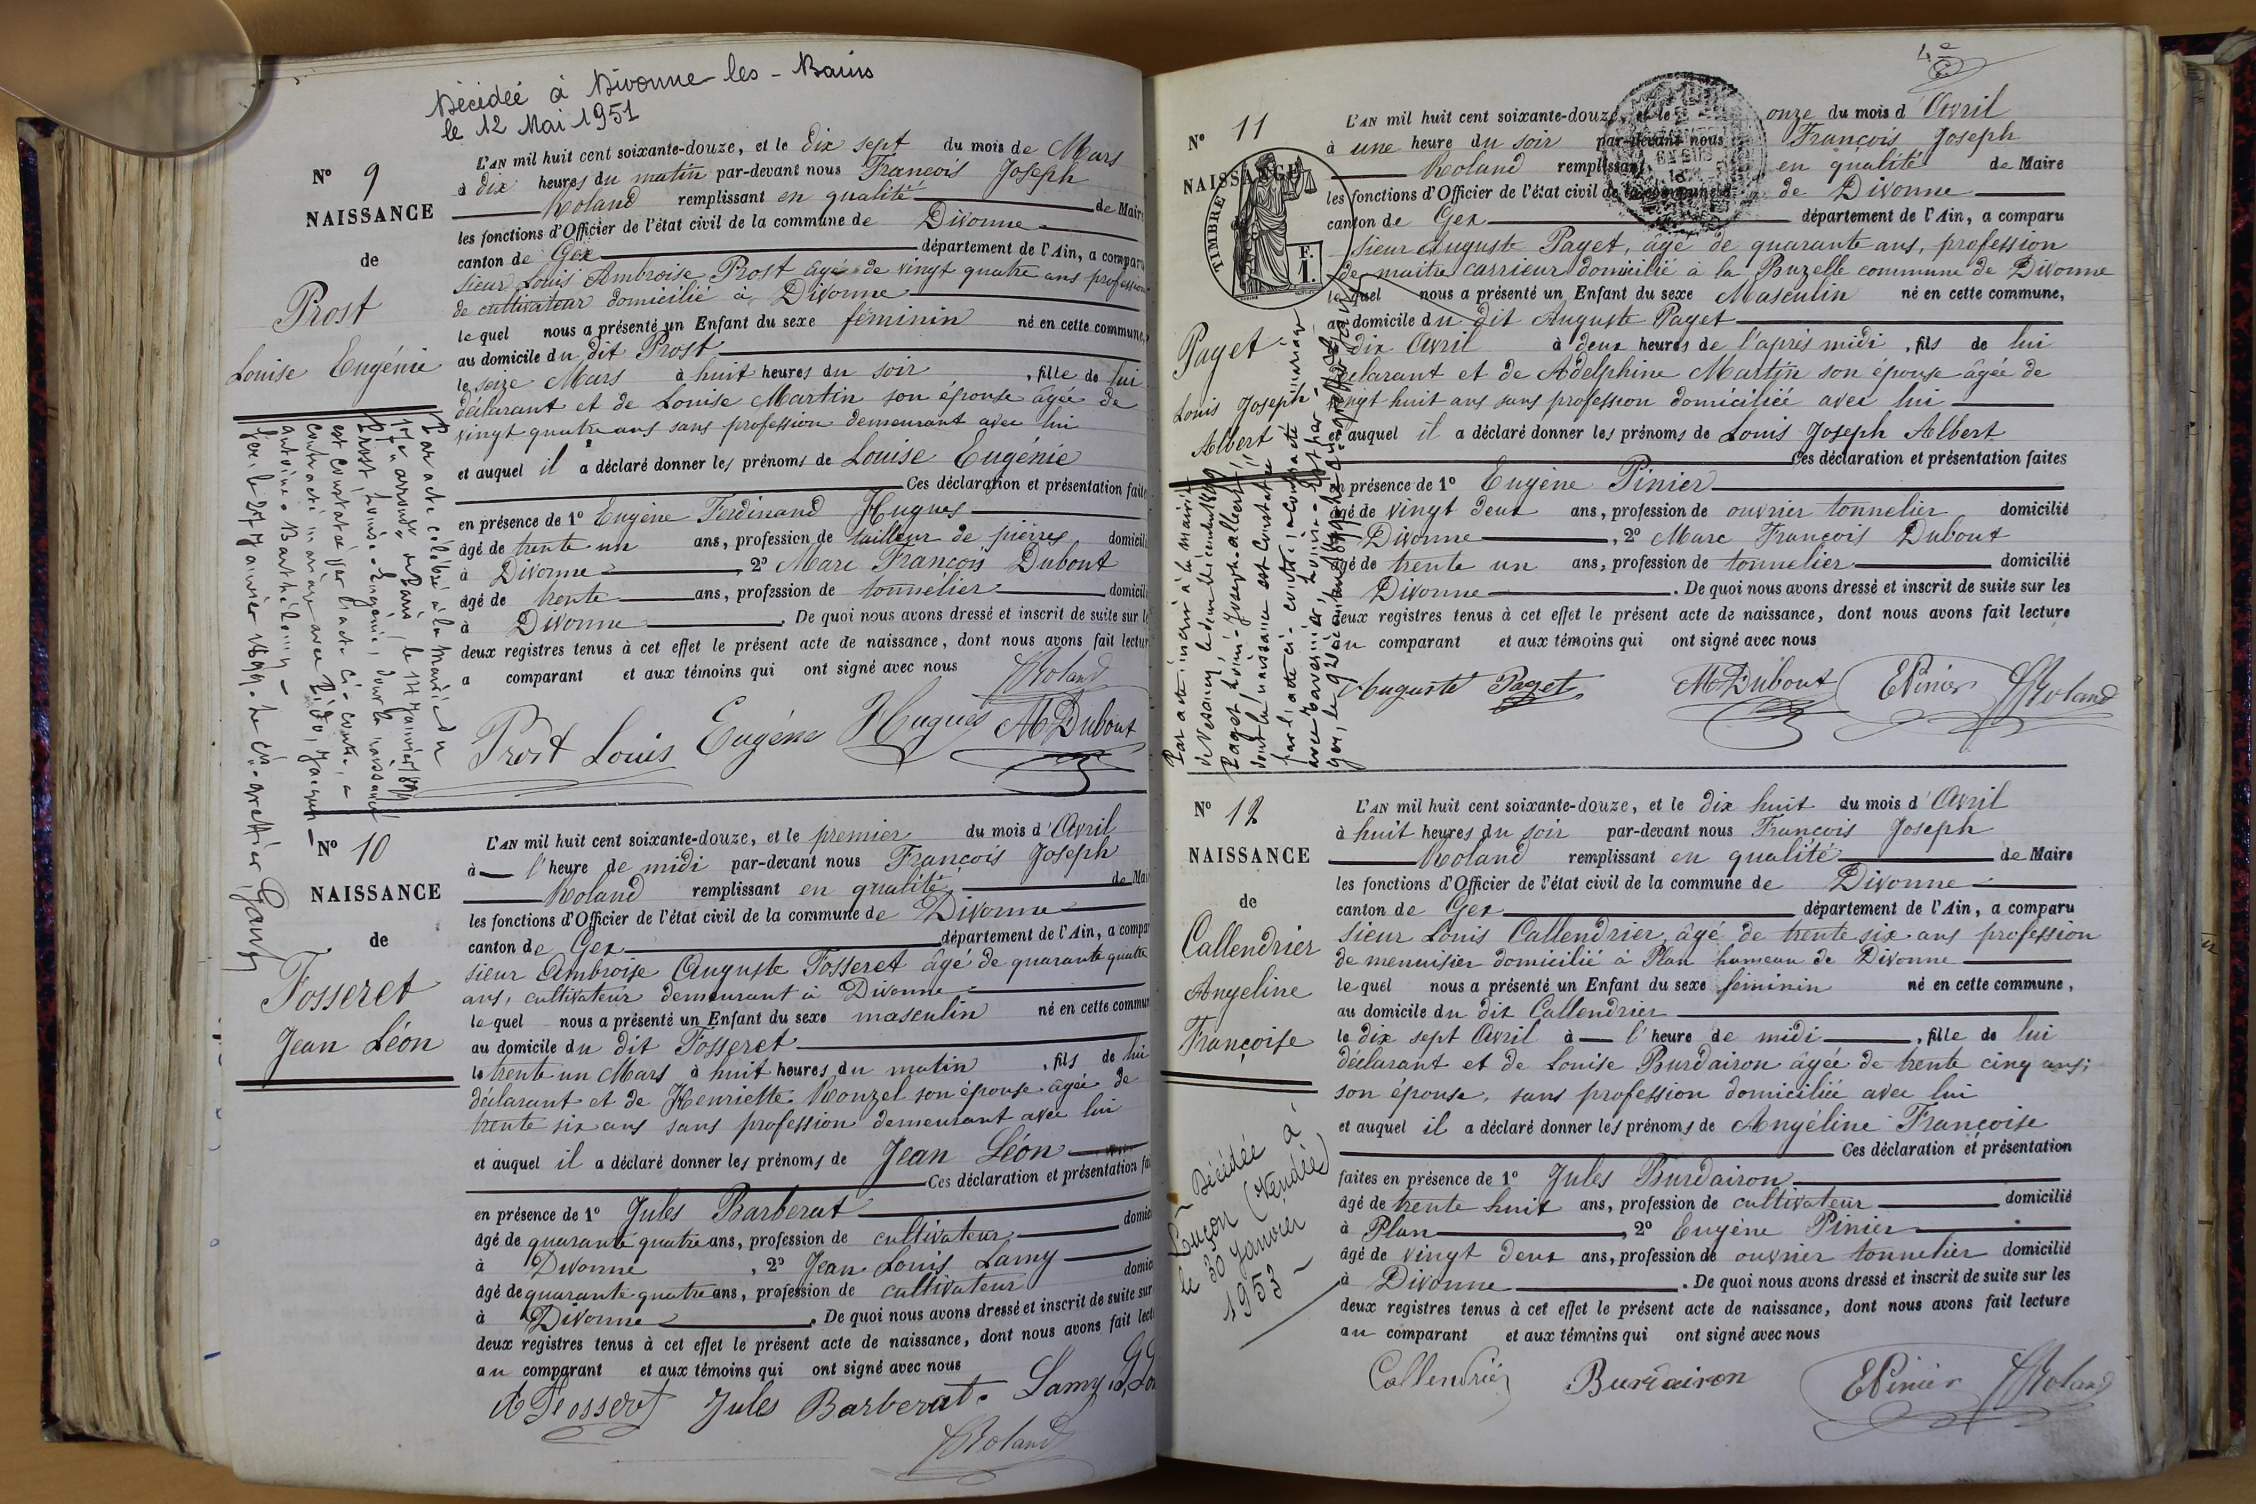 Décédée à Divonne-les-Bains
le 12 Mai 1951
N° 9
NAISSANCE
de
Prost
Louise Eugénie
L'AN mil huit cent soixante-douze, et le dix sept du mois de Mars
à dix heures du matin par-devant nous François Joseph
Roland remplissant en qualité de Maire
les fonctions d'Officier de l'état civil de la commune de Divonne
canton de Gex département de l'Ain, a comparu
sieur Louis Ambroise Prost âgé de vingt quatre ans profession
de cultivateur domicilié à Divonne
le quel nous a présenté un Enfant du sexe féminin né en cette commune,
au domicile du dit Prost
le seize Mars à huit heures du soir, fille de lui
déclarant et de Louise Martin son épouse âgée de
vingt quatre ans sans profession demeurant avec lui
et auquel il a déclaré donner les prénoms de Louise Eugénie
Ces déclaration et présentation faites
en présence de 1° Eugène Ferdinand Hugues
âgé de trente un ans, profession de tailleur de pierres domicilié
à Divonne, 2° Marc François Dubout
âgé de trente ans, profession de tonnelier domicilié
à Divonne. De quoi nous avons dressé et inscrit de suite sur les
deux registres tenus à cet effet le présent acte de naissance, dont nous avons fait lecture
a comparant et aux témoins qui ont signé avec nous
Roland
Prost Louis Eugène Hugues M Dubout
Par acte célébré à la Mairie du
arrondt de Paris, le 14 Janvier 1899
Prost, Louise-Eugénie, dont la naissance
est constatée par l'acte ci-contre, a
contracté mariage avec
Antoine-Barthélemy
Gex, le 27 Janvier 1899. Le Cis-greffier,
N° 10
NAISSANCE
de
Fosseret
Jean Léon
L'AN mil huit cent soixante-douze, et le premier du mois d'Avril
à l'heure de midi par-devant nous François Joseph
Roland remplissant en qualité de Mai
les fonctions d'Officier de l'état civil de la commune de Divonne
canton de Gex département de l'Ain, a compar
sieur Ambroise Auguste Fosseret âgé de quarante quatre
ans, cultivateur demeurant à Divonne
le quel nous a présenté un Enfant du sexe masculin né en cette commun
au domicile du dit Fosseret
le trente un Mars à huit heures du matin, fils de lui
déclarant et de Henriette Rouzel son épouse âgée de
trente six ans sans profession demeurant avec lui
et auquel il a déclaré donner les prénoms de Jean Léon
Ces déclaration et présentation fai
en présence de 1° Jules Barberat
âgé de quarante quatre ans, profession de cultivateur domici
à Divonne, 2° Jean Louis Lamy
âgé de quarante-quatre ans, profession de cultivateur domici
à Divonne. De quoi nous avons dressé et inscrit de suite sur
deux registres tenus à cet effet le présent acte de naissance, dont nous avons fait lect
au comparant et aux témoins qui ont signé avec nous
A Fosseret Jules Barberat. Lamy
Roland
4e
N° 11
NAISSANCE
TIMBRE
F.
1.
Paget
Louis Joseph
Albert
L'AN mil huit cent soixante-douze, et le onze du mois d Avril
à une heure du soir par-devant nous François Joseph
Roland remplissant en qualité de Maire
les fonctions d'Officier de l'état civil de la commune de Divonne
canton de Gex département de l'Ain, a comparu
sieur Auguste Paget, âgé de quarante ans, profession
de maitre carrieur domicilié à la Buzelle commune de Divonne
le quel nous a présenté un Enfant du sexe Masculin né en cette commune,
au domicile du dit Auguste Paget
dix Avril à deux heures de l'après midi, fils de lui
déclarant et de Adelphine Martin son épouse âgée de
vingt huit ans sans profession domiciliée avec lui
et auquel il a déclaré donner les prénoms de Louis Joseph Albert
Ces déclaration et présentation faites
en présence de 1° Eugène Pinier
âgé de vingt deux ans, profession de ouvrier tonnelier domicilié
Divonne, 2° Marc François Dubout
âgé de trente un ans, profession de tonnelier domicilié
Divonne. De quoi nous avons dressé et inscrit de suite sur les
deux registres tenus à cet effet le présent acte de naissance, dont nous avons fait lecture
au comparant et aux témoins qui ont signé avec nous
Auguste Paget M Dubout E Pinier Roland
Par acte inscrit à la mairie
de Vesancy, le
Paget Louis-Joseph-Albert,
dont la naissance est constatée
par l'acte ci-contre, a contracté mariage
avec
Gex, le
N° 12
NAISSANCE
de
Callendrier
Angeline
Françoise
L'AN mil huit cent soixante-douze, et le dix huit du mois d'Avril
à huit heures du soir par-devant nous François Joseph
Roland remplissant en qualité de Maire
les fonctions d'Officier de l'état civil de la commune de Divonne
canton de Gex département de l'Ain, a comparu
sieur Louis Callendrier, âgé de trente six ans profession
de menuisier domicilié à Plan hameau de Divonne
le quel nous a présenté un Enfant du sexe féminin né en cette commune,
au domicile du dit Callendrier
le dix sept Avril à l'heure de midi, fille de lui
déclarant et de Louise Burdairon âgée de trente cinq ans;
son épouse, sans profession domiciliée avec lui
et auquel il a déclaré donner les prénoms de Angéline Françoise
Ces déclaration et présentation
faites en présence de 1° Jules Burdairon
âgé de trente huit ans, profession de cultivateur domicilié
à Plan, 2° Eugène Pinier
âgé de vingt deux ans, profession de ouvrier tonnelier domicilié
à Divonne. De quoi nous avons dressé et inscrit de suite sur les
deux registres tenus à cet effet le présent acte de naissance, dont nous avons fait lecture
au comparant et aux témoins qui ont signé avec nous
Callendrier Burdairon E Pinier Roland
Décédée à
Luçon (Vendée)
le 30 Janvier
1953